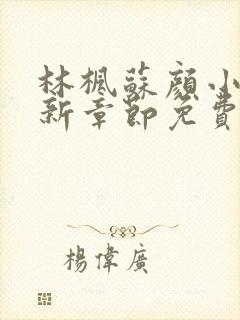 林楓蘇顏小
新章節免費
楊偉廣